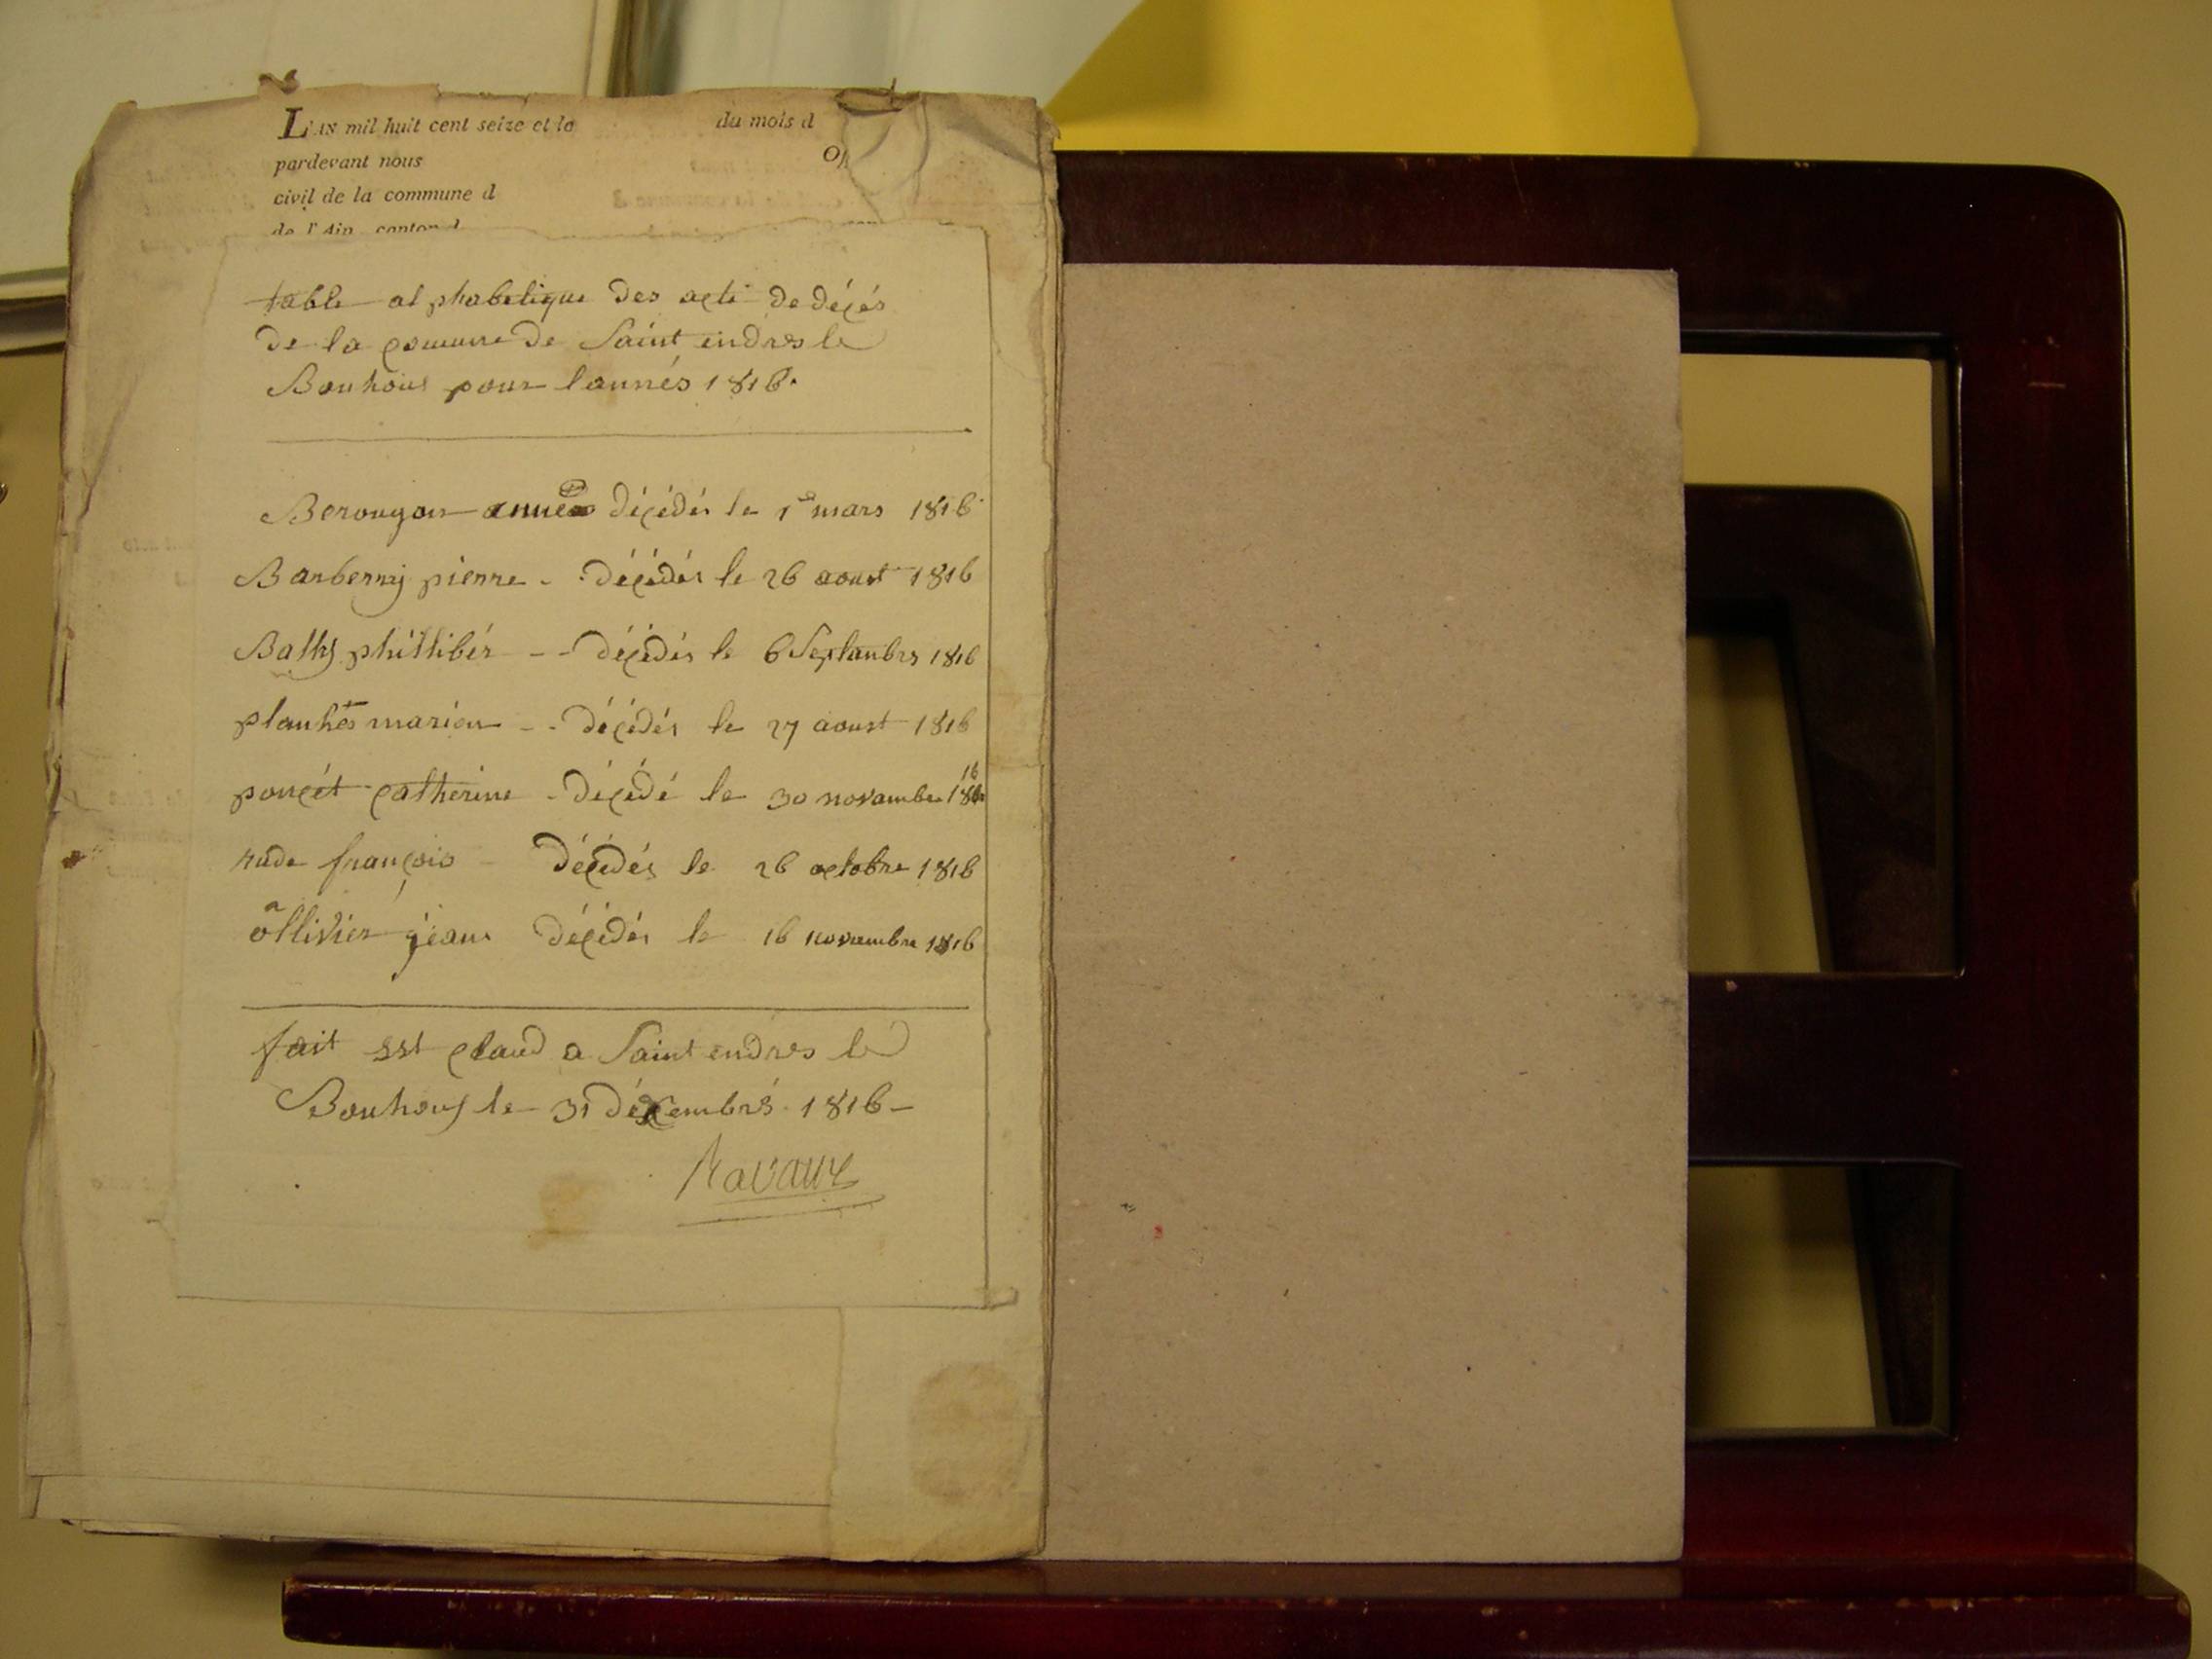 L'AN mil huit cent seize et le du mois d
pardevant nous Of
civil de la commune d
de l'Ain, canton d
table alphabetique des acte de décés
de la comune de Saint endres le
Bouhous pour lannés 1816.
Berougon décédés le 1e mars 1816
Barberny pierre - décédés le 26 aoust 1816
Bathy phillibér -- décédés le 6 Septanbrs 1816
planhes marion -- décédés le 27 aoust 1816
poncét catherine - décédé le 30 novambre 1816
rude françois - décédés le 26 octobre 1816
ollivier jéane décédés le 16 novembre 1816
fait est claud a Saint endres le
Bouhous le 31 décembrs 1816 -
Ravaux